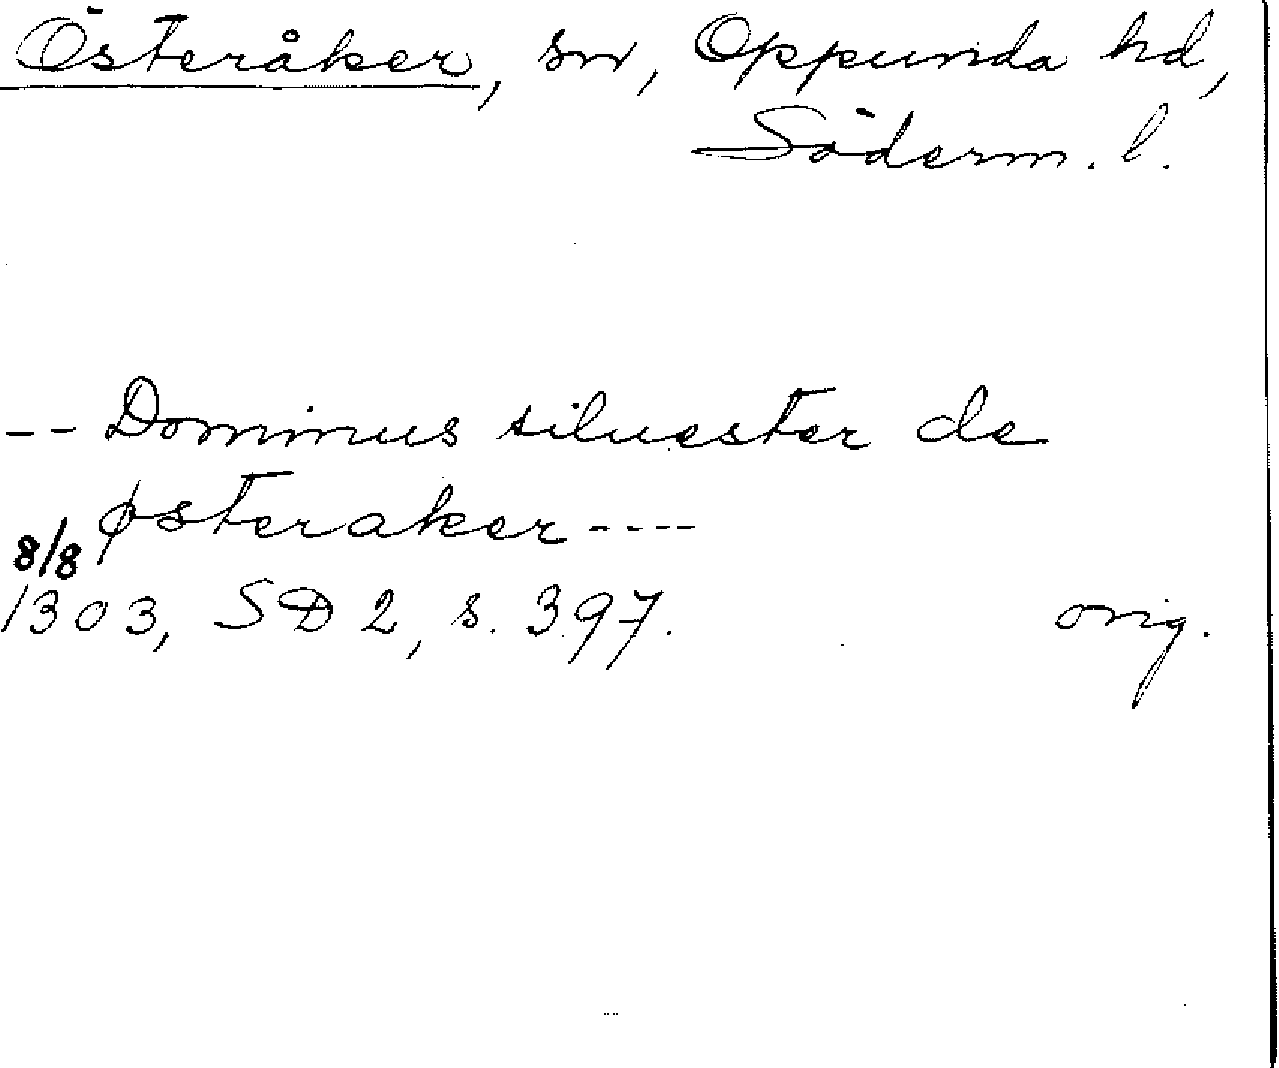 Österåker, sn, Oppunda hd,
Söderm. l.
-- Dominus siluester de
østeraker ----
8/8
1303, SD 2, s. 397. orig.